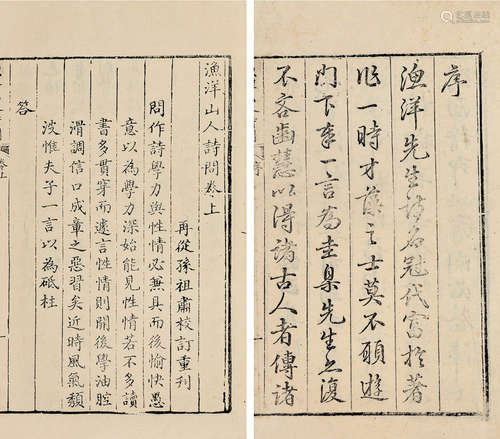 序
漁洋先生詩名冠代富於著
作一時才藻之士莫不願遊
門下奉一言為圭臬先生亦復
不吝齒慧以得諸古人者傳諸
漁洋山人詩問卷上
再從孫祖肅校訂重刊
問作詩學力與性情必兼具而後愉快愚
意以為學力深始能見性情若不多讀
書多貫穿而遽言性情則開後學油腔
滑調信口成章之惡習矣近時風氣頹
波惟夫子一言以為砥柱
答
卷上